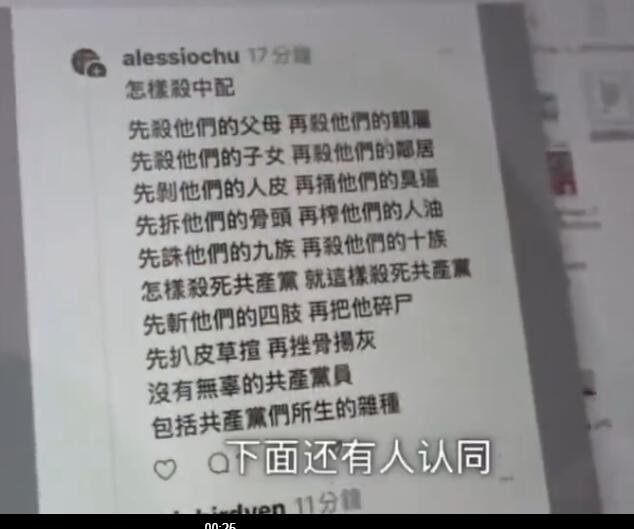 alessiochu 17分鐘
怎樣殺中配
先殺他們的父母 再殺他們的親屬
先殺他們的子女 再殺他們的鄰居
先剝他們的人皮 再捅他們的臭逼
先拆他們的骨頭 再榨他們的人油
先誅他們的九族 再殺他們的十族
怎樣殺死共產黨 就這樣殺死共產黨
先斬他們的四肢 再把他碎尸
先扒皮草揎 再挫骨揚灰
沒有無辜的共產黨員
包括共產黨們所生的雜種
下面还有人认同
11分鐘